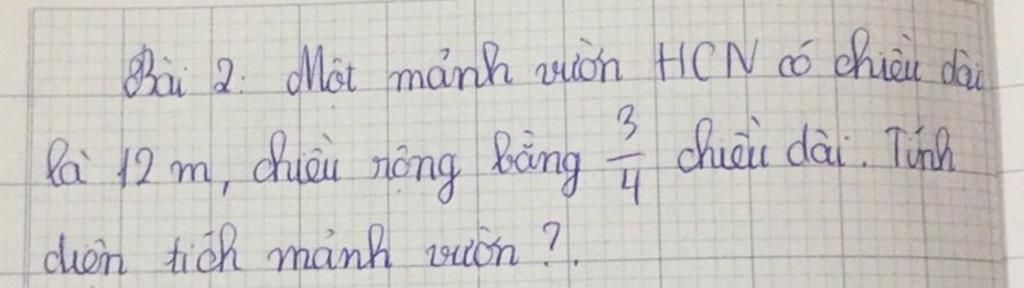 Bài 2: Một mảnh vườn HCN có chiều dài
là 12 m, chiều rộng bằng 3/4 chiều dài. Tính
diện tích mảnh vườn ?.